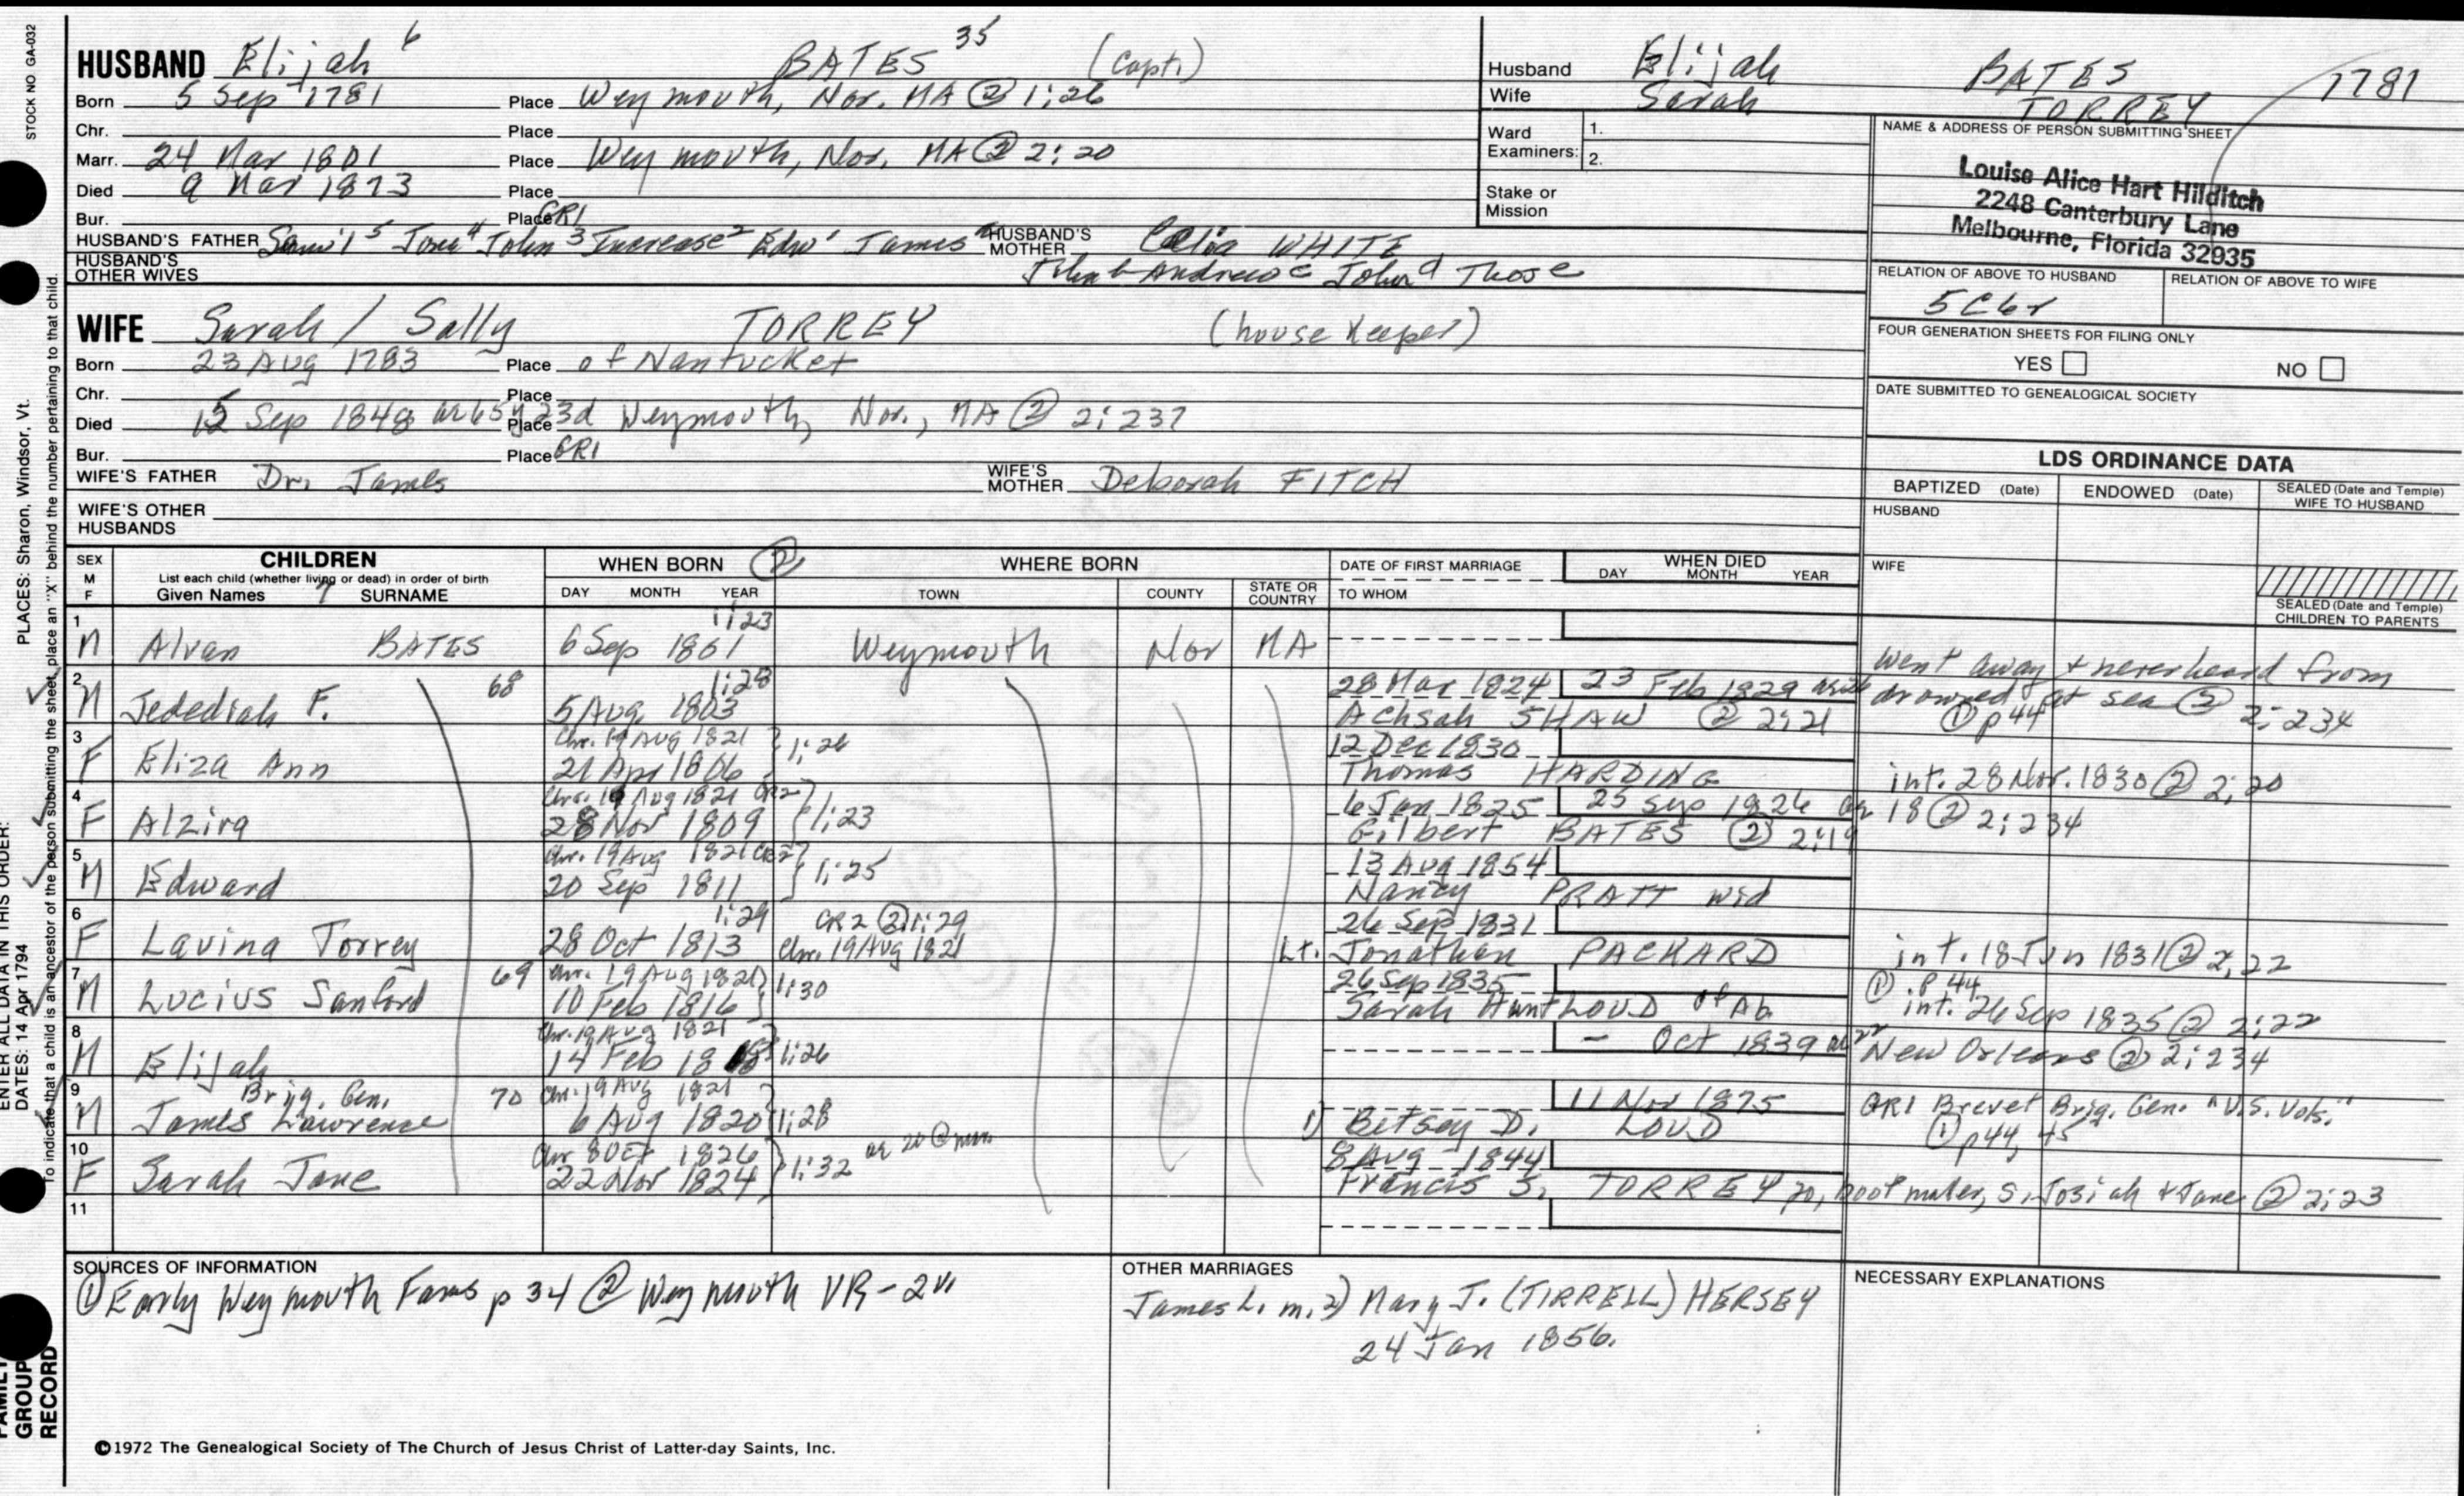 STOCK NO GA-032
HUSBAND Elijah 6 BATES 35 (Capt.)
Born 5 Sep 1781 Place Weymouth, Nor. MA @ 1:26
Chr. Place
Marr. 24 Mar 1801 Place Weymouth, Nor. MA ② 2:20
Died 9 Mar 1873 Place
Bur. Place GR1
HUSBAND'S FATHER Sam'l 5 4 John 3 Increase 2 Edw 1 James HUSBAND'S MOTHER Celia WHITE
HUSBAND'S OTHER WIVES b Andrew c John d Thos e
Husband Elijah BATES 1781
Wife Sarah TORREY
Ward Examiners: 1.
2.
Stake or Mission
NAME & ADDRESS OF PERSON SUBMITTING SHEET
Louise Alice Hart Hilditch
2248 Canterbury Lane
Melbourne, Florida 32935
RELATION OF ABOVE TO HUSBAND RELATION OF ABOVE TO WIFE
5C6r
FOUR GENERATION SHEETS FOR FILING ONLY
YES NO
DATE SUBMITTED TO GENEALOGICAL SOCIETY
WIFE Sarah / Sally TORREY (housekeeper)
Born 23 Aug 1783 Place of Nantucket
Chr. Place
Died 15 Sep 1848 ae 65y 23d Place Weymouth, Nor., MA @ 2:237
Bur. Place GR1
WIFE'S FATHER Dr. James WIFE'S MOTHER Deborah FITCH
WIFE'S OTHER HUSBANDS
LDS ORDINANCE DATA
BAPTIZED (Date) ENDOWED (Date) SEALED (Date and Temple) WIFE TO HUSBAND
HUSBAND
WIFE
SEALED (Date and Temple) CHILDREN TO PARENTS
SEX M F CHILDREN List each child (whether living or dead) in order of birth Given Names 7 SURNAME
WHEN BORN ② DAY MONTH YEAR
WHERE BORN TOWN COUNTY STATE OR COUNTRY
DATE OF FIRST MARRIAGE TO WHOM
WHEN DIED DAY MONTH YEAR
1 M Alvan BATES 6 Sep 1801 1:23 Weymouth Nor MA
went away & never heard from
2 M Jedediah F. 68 5 Aug 1803 1:28 28 Mar 1824 23 Feb 1829 drowned at sea ② 2:234
Achsah SHAW ② 2:21 ① p44
3 F Eliza Ann Chr. 19 Aug 1821 21 Apr 1806 1:26 12 Dec 1830
Thomas HARDING int. 28 Nov. 1830 ② 2:20
4 F Alzira Chr. 19 Aug 1821 CR2 28 Nov 1809 1:23 6 Jan 1825 25 Sep 1826 ae 18 ② 2:234
Gilbert BATES ② 2:19
5 M Edward Chr. 19 Aug 1821 CR2 20 Sep 1811 1:25 13 Aug 1854
Nancy PRATT wid
6 F Lavina Torrey 28 Oct 1813 1:29 CR2 ② 1:29 Chr. 19 Aug 1821 26 Sep 1831
Lt. Jonathan PACKARD int. 18 Jun 1831 ② 2:22
7 M Lucius Sanford 69 Chr. 19 Aug 1821 10 Feb 1816 1:30 26 Sep 1835 ① p 44
Sarah Hunt LOUD of Ab. int. 26 Sep 1835 ② 2:22
8 M Elijah Chr. 19 Aug 1821 14 Feb 1818 1:26 – Oct 1839 ae 22 New Orleans ② 2:234
9 M Brig. Gen. James Lawrence 70 Chr. 19 Aug 1821 6 Aug 1820 1:28 11 Nov 1875 GR1 Brevet Brig. Gen. "U.S. Vols."
1) Betsey D. LOUD ① p44, 45
10 F Sarah Jane Chr 8 Oct 1826 22 Nov 1824 1:32 ae 20 @ marr. 8 Aug 1844
Francis S. TORREY 20, bootmaker, s. Josiah & Jane ② 2:23
11
SOURCES OF INFORMATION
① Early Weymouth Fams p 34 ② Weymouth VR-2v
OTHER MARRIAGES
James L. m. 2) Mary J. (TIRRELL) HERSEY
24 Jan 1856.
NECESSARY EXPLANATIONS
©1972 The Genealogical Society of The Church of Jesus Christ of Latter-day Saints, Inc.
FAMILY GROUP RECORD
ENTER ALL DATA IN THIS ORDER:
DATES: 14 Apr 1794
PLACES: Sharon, Windsor, Vt.
To indicate that a child is an ancestor of the person submitting the sheet, place an "X" behind the number pertaining to that child.